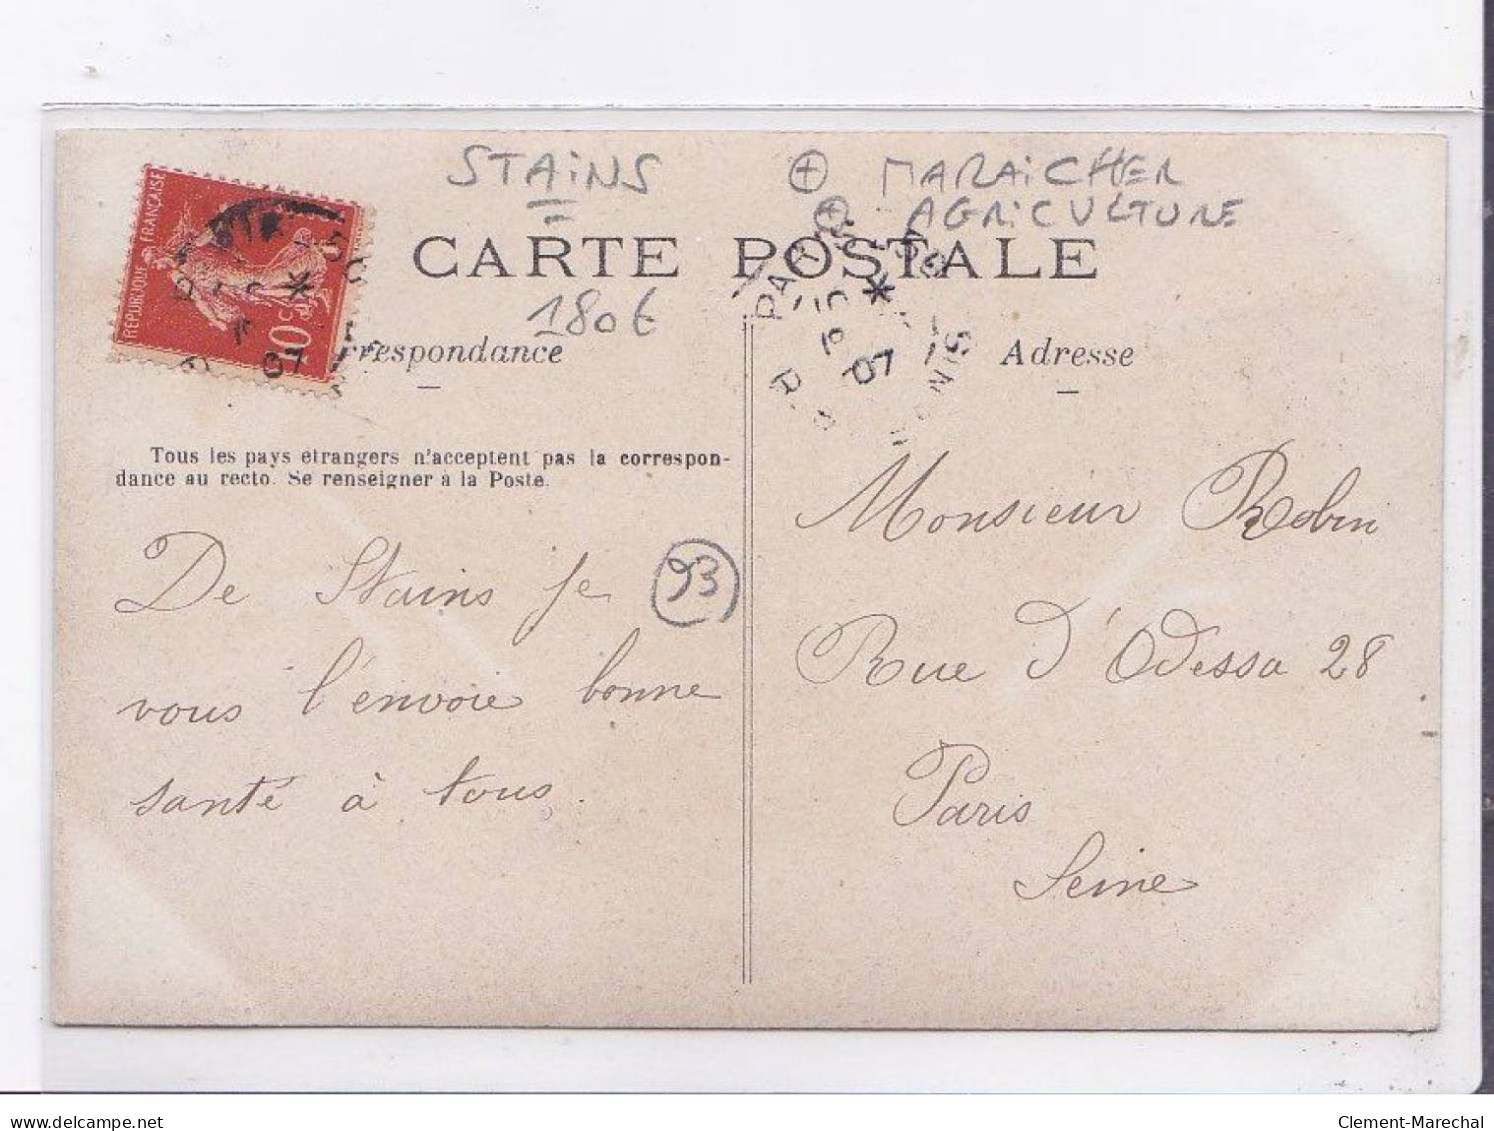 STAiNS ⊕ MARAiCHER
⊕ AGRiCULTURE
CARTE POSTALE
180€
REPUBLIQUE FRANÇAISE
10 c
07
PARIS
07
rrespondance
Adresse
Tous les pays étrangers n'acceptent pas la correspon-
dance au recto. Se renseigner à la Poste.
De Stains je
vous l'envoie bonne
santé à tous.
93
Monsieur Robin
Rue d'Odessa 28
Paris
Seine
www.delcampe.net
Clement-Marechal